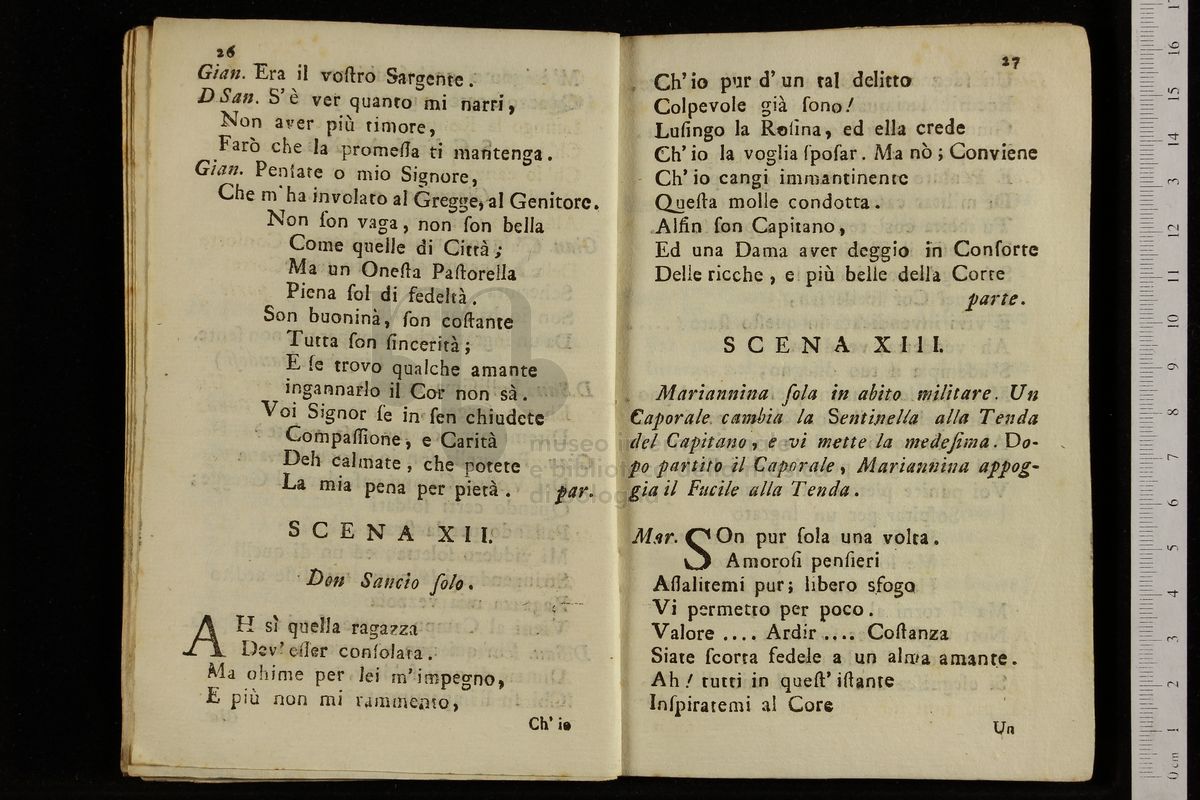 26
Gian. Era il voſtro Sargente.
D San. S'è ver quanto mi narri,
Non aver più timore,
Farò che la promeſſa ti mantenga.
Gian. Penſate o mio Signore,
Che m'ha involato al Gregge, al Genitore.
Non ſon vaga, non ſon bella
Come quelle di Città;
Ma un Oneſta Paſtorella
Piena ſol di fedeltà.
Son buoninà, ſon coſtante
Tutta ſon ſincerità;
E ſe trovo qualche amante
ingannarlo il Cor non sà.
Voi Signor ſe in ſen chiudete
Compaſſione, e Carità
Deh calmate, che potete
La mia pena per pietà. par.
SCENA XII.
Don Sancio ſolo.
AH sì quella ragazza
Dev' eſſer conſolata.
Ma ohime per lei m'impegno,
E più non mi rammento,
Ch' io
27
Ch' io pur d' un tal delitto
Colpevole già ſono!
Luſingo la Roſina, ed ella crede
Ch' io la voglia ſpoſar. Ma nò; Conviene
Ch' io cangi immantinente
Queſta molle condotta.
Alfin ſon Capitano,
Ed una Dama aver deggio in Conſorte
Delle ricche, e più belle della Corte
parte.
SCENA XIII.
Mariannina ſola in abito militare. Un
Caporale cambia la Sentinella alla Tenda
del Capitano, e vi mette la medeſima. Do-
po partito il Caporale, Mariannina appog-
gia il Fucile alla Tenda.
Mar. SOn pur ſola una volta.
Amoroſi penſieri
Aſſalitemi pur; libero sfogo
Vi permetto per poco.
Valore .... Ardir .... Coſtanza
Siate ſcorta fedele a un alma amante.
Ah! tutti in queſt' iſtante
Inſpiratemi al Core
Un